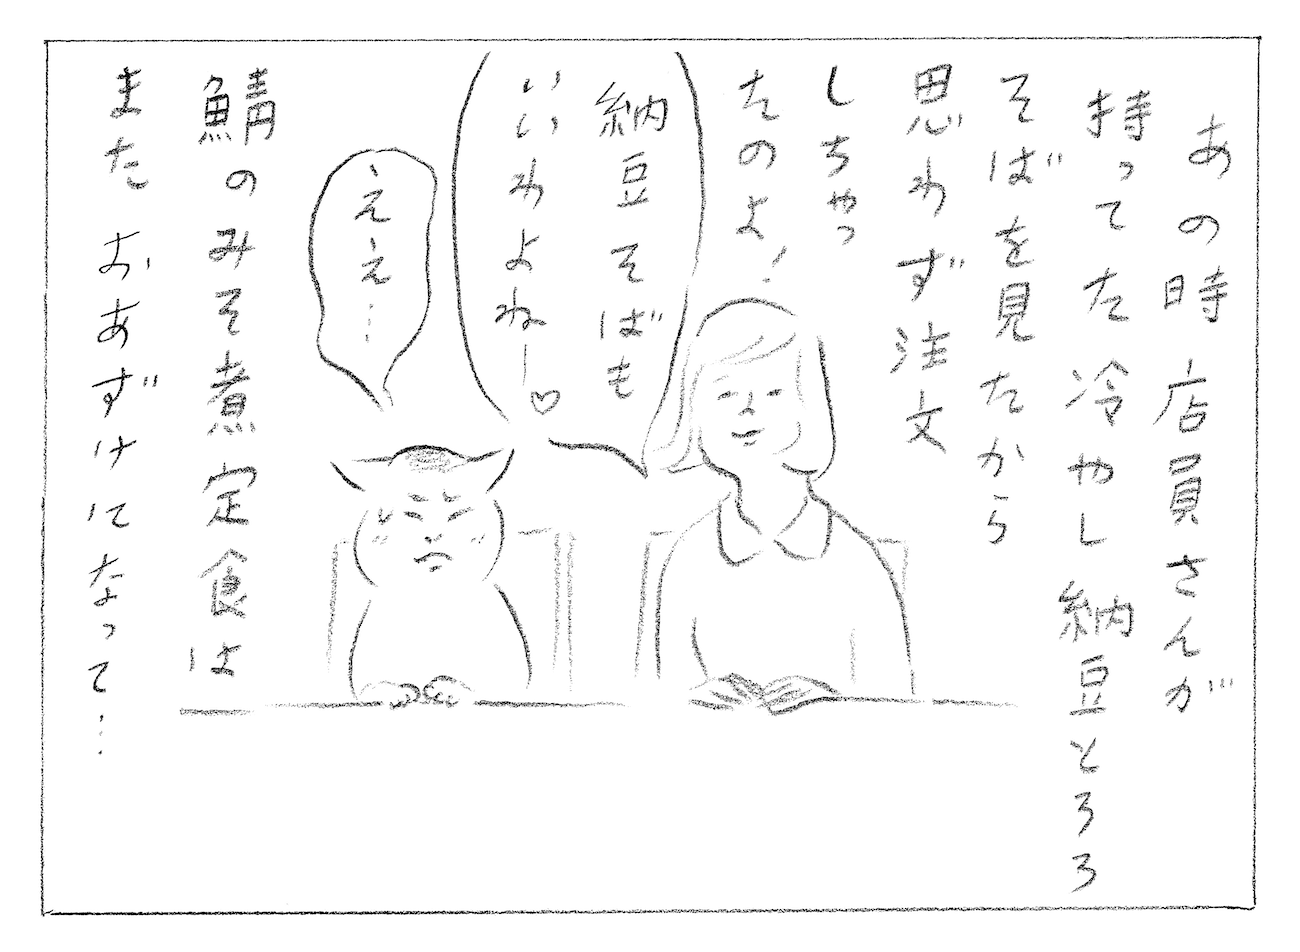 あの時店員さんが
持ってた冷やし納豆とろろ
そばを見たから
思わず注文
しちゃっ
たのよ!
納豆そばも
いいわよねー♡
ええ…
鯖のみそ煮定食は
またおあずけになって…